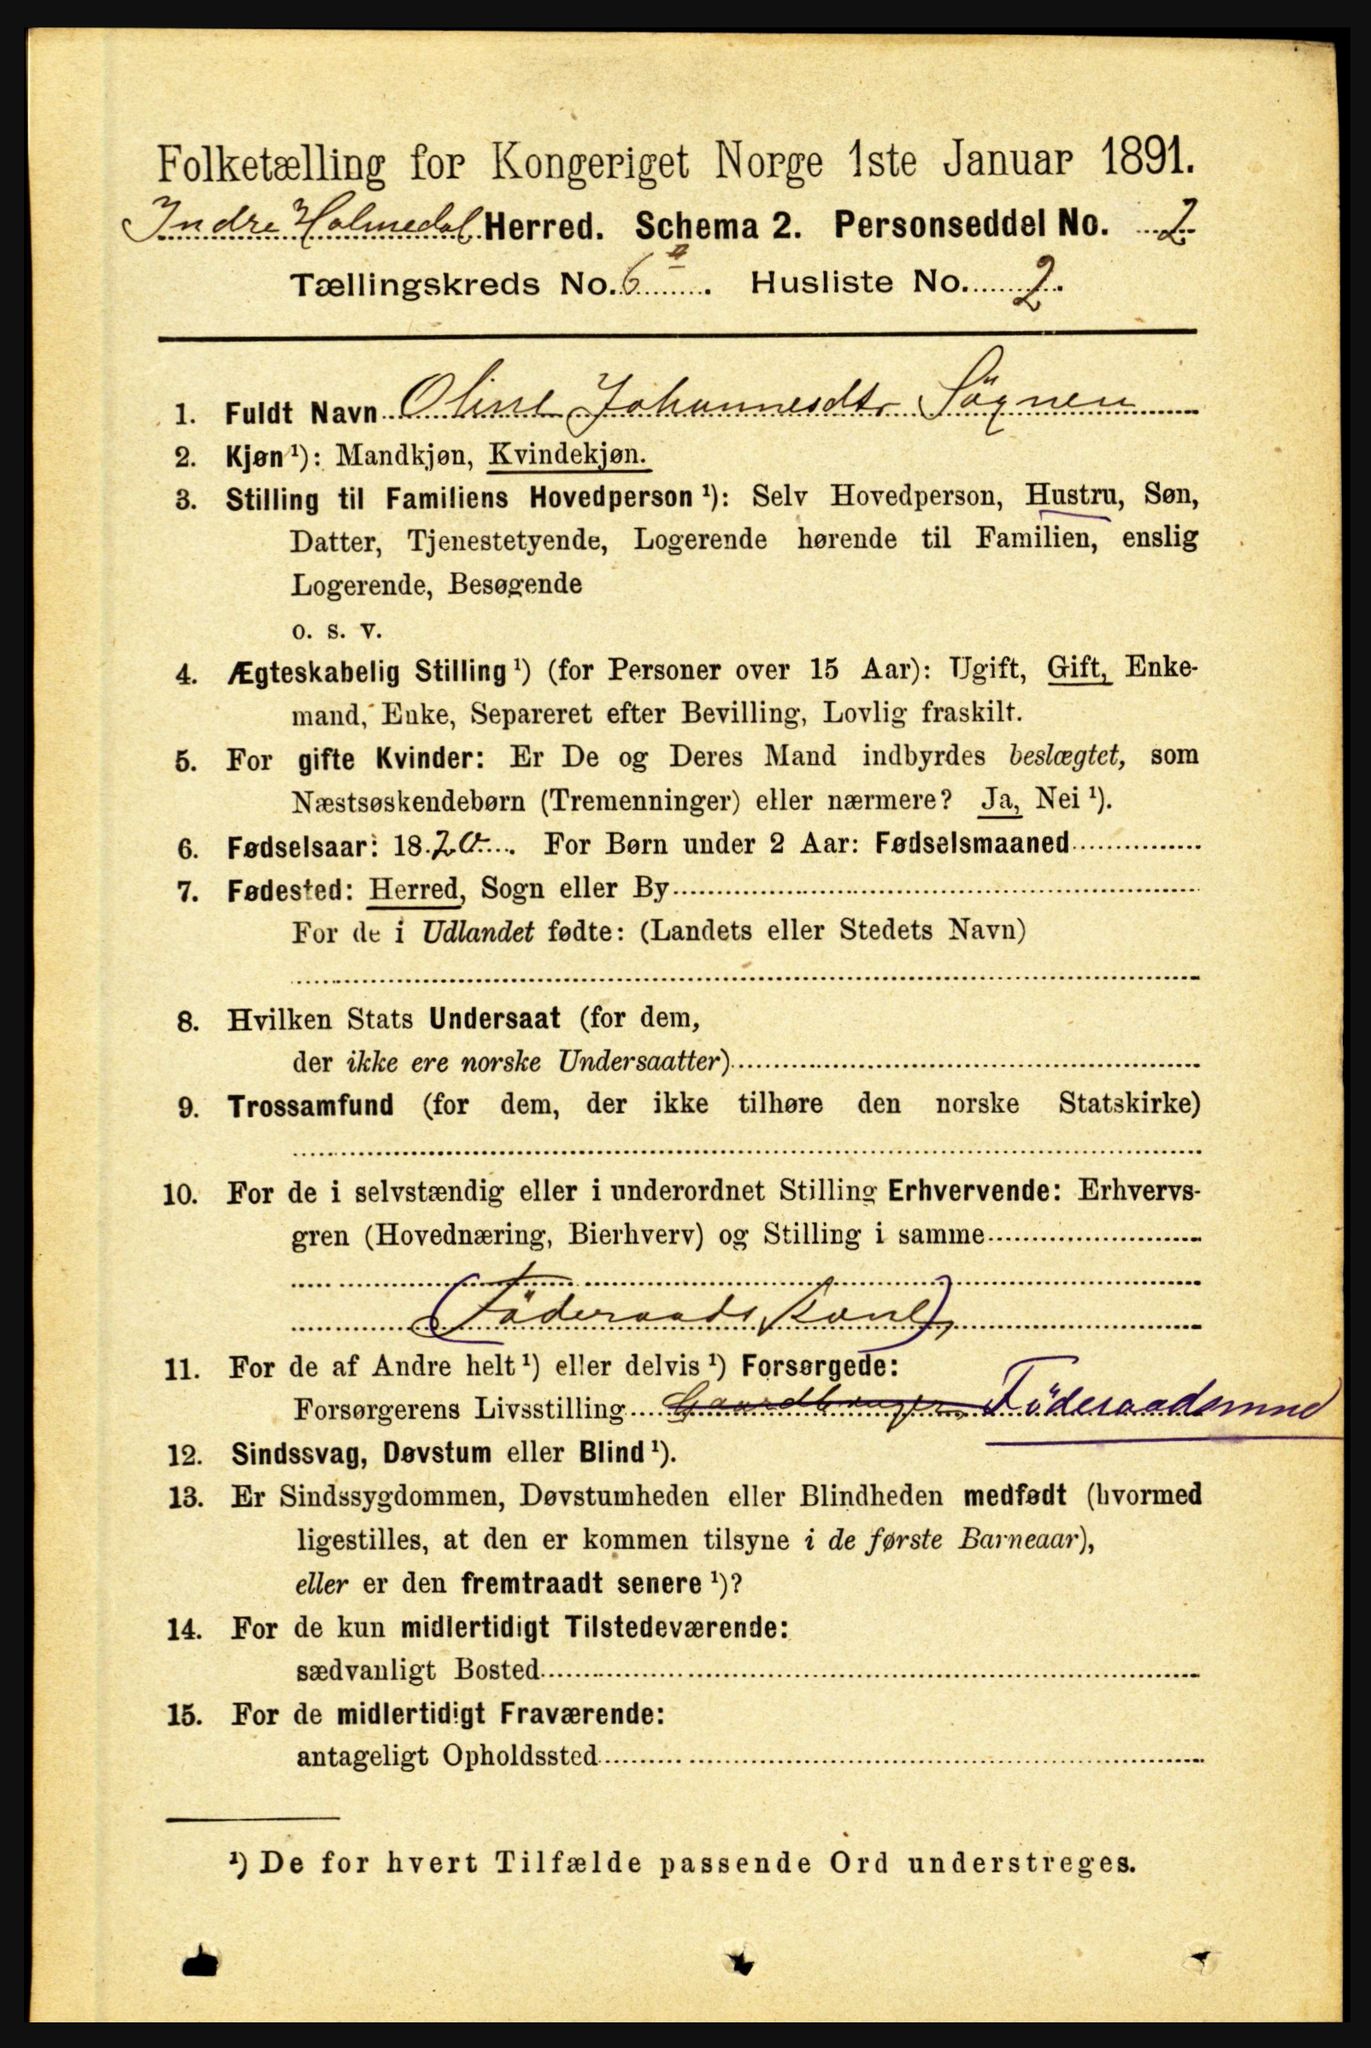 Folketælling for Kongeriget Norge 1ste Januar 1891.
Indre Holmedal Herred. Schema 2. Personseddel No. 2
Tællingskreds No. 6a. Husliste No. 2.
1. Fuldt Navn Oline Johannesdtr Sögnen
2. Kjøn ¹): Mandkjøn, Kvindekjøn.
3. Stilling til Familiens Hovedperson ¹): Selv Hovedperson, Hustru, Søn,
Datter, Tjenestetyende, Logerende hørende til Familien, enslig
Logerende, Besøgende
o. s. v.
4. Ægteskabelig Stilling ¹) (for Personer over 15 Aar): Ugift, Gift, Enke-
mand, Enke, Separeret efter Bevilling, Lovlig fraskilt.
5. For gifte Kvinder: Er De og Deres Mand indbyrdes beslægtet, som
Næstsøskendebørn (Tremenninger) eller nærmere? Ja, Nei ¹).
6. Fødselsaar: 1820. For Børn under 2 Aar: Fødselsmaaned
7. Fødested: Herred, Sogn eller By
For de i Udlandet fødte: (Landets eller Stedets Navn)
8. Hvilken Stats Undersaat (for dem,
der ikke ere norske Undersaatter)
9. Trossamfund (for dem, der ikke tilhøre den norske Statskirke)
10. For de i selvstændig eller i underordnet Stilling Erhvervende: Erhvervs-
gren (Hovednæring, Bierhverv) og Stilling i samme
(Föderaads Kone)
11. For de af Andre helt ¹) eller delvis ¹) Forsørgede:
Forsørgerens Livsstilling Gaardbruger Föderaadsmnd
12. Sindssvag, Døvstum eller Blind ¹).
13. Er Sindssygdommen, Døvstumheden eller Blindheden medfødt (hvormed
ligestilles, at den er kommen tilsyne i de første Barneaar),
eller er den fremtraadt senere ¹)?
14. For de kun midlertidigt Tilstedeværende:
sædvanligt Bosted
15. For de midlertidigt Fraværende:
antageligt Opholdssted
¹) De for hvert Tilfælde passende Ord understreges.